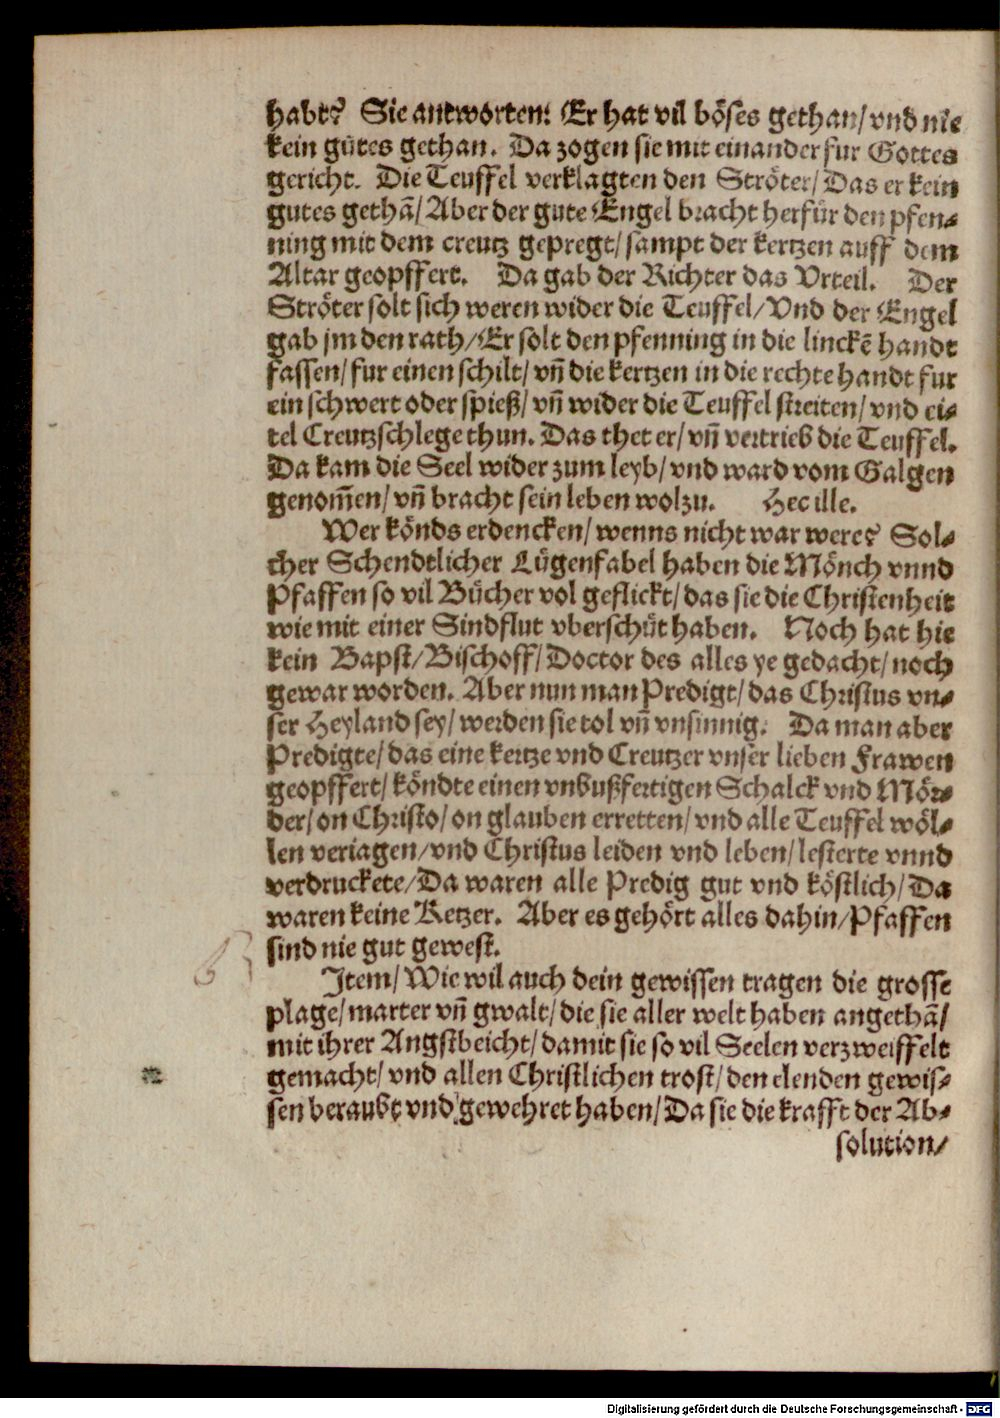 habt? Sie antworten: Er hat vil böses gethan/ vnd nie
kein gütes gethan. Da zogen sie mit einander fur Gottes
gericht. Die Teuffel verklagten den Ströter/ Das er kein
gutes gethā/ Aber der gute Engel bracht herfür den pfen-
ning mit dem creutz gepregt/ sampt der kertzen auff dem
Altar geopffert. Da gab der Richter das Vrteil. Der
Ströter solt sich weren wider die Teuffel/ Vnd der Engel
gab jm den rath/ Er solt den pfenning in die linckē handt
fassen/ fur einen schilt/ vn̄ die kertzen in die rechte handt fur
ein schwert oder spieß/ vn̄ wider die Teuffel streiten/ vnd ei-
tel Creutzschlege thun. Das thet er/ vn̄ vertrieb die Teuffel.
Da kam die Seel wider zum leyb/ vnd ward vom Galgen
genom̄en/ vn̄ bracht sein leben wol zu. Hec ille.
Wer könds erdencken/ wenns nicht war were? Sol-
cher Schendtlicher Lügenfabel haben die Mönch vnnd
Pfaffen so vil Bücher vol geflickt/ das sie die Christenheit
wie mit einer Sindflut vberschüt haben. Noch hat hie
kein Bapst/ Bischoff/ Doctor des alles ye gedacht/ noch
gewar worden. Aber nun man Predigt/ das Christus vn-
ser Heyland sey/ werden sie tol vn̄ vnsinnig. Da man aber
Predigte/ das eine kertze vnd Creutzer vnser lieben Frawen
geopffert/ köndte einen vnbußfertigen Schalck vnd Mör-
der/ on Christo/ on glauben erretten/ vnd alle Teuffel wöl-
len veriagen/ vnd Christus leiden vnd leben/ lesterte vnnd
verdruckete/ Da waren alle Predig gut vnd köstlich/ Da
waren keine Ketzer. Aber es gehört alles dahin/ Pfaffen
sind nie gut gewest.
Item/ Wie wil auch dein gewissen tragen die grosse
plage/ marter vn̄ gwalt/ die sie aller welt haben angethā/
mit ihrer Angstbeicht/ damit sie so vil Seelen verzweiffelt
gemacht/ vnd allen Christlichen trost/ den elenden gewis-
sen beraubt vnd gewehret haben/ Da sie die krafft der Ab-
solution/
Digitalisierung gefördert durch die Deutsche Forschungsgemeinschaft - DFG